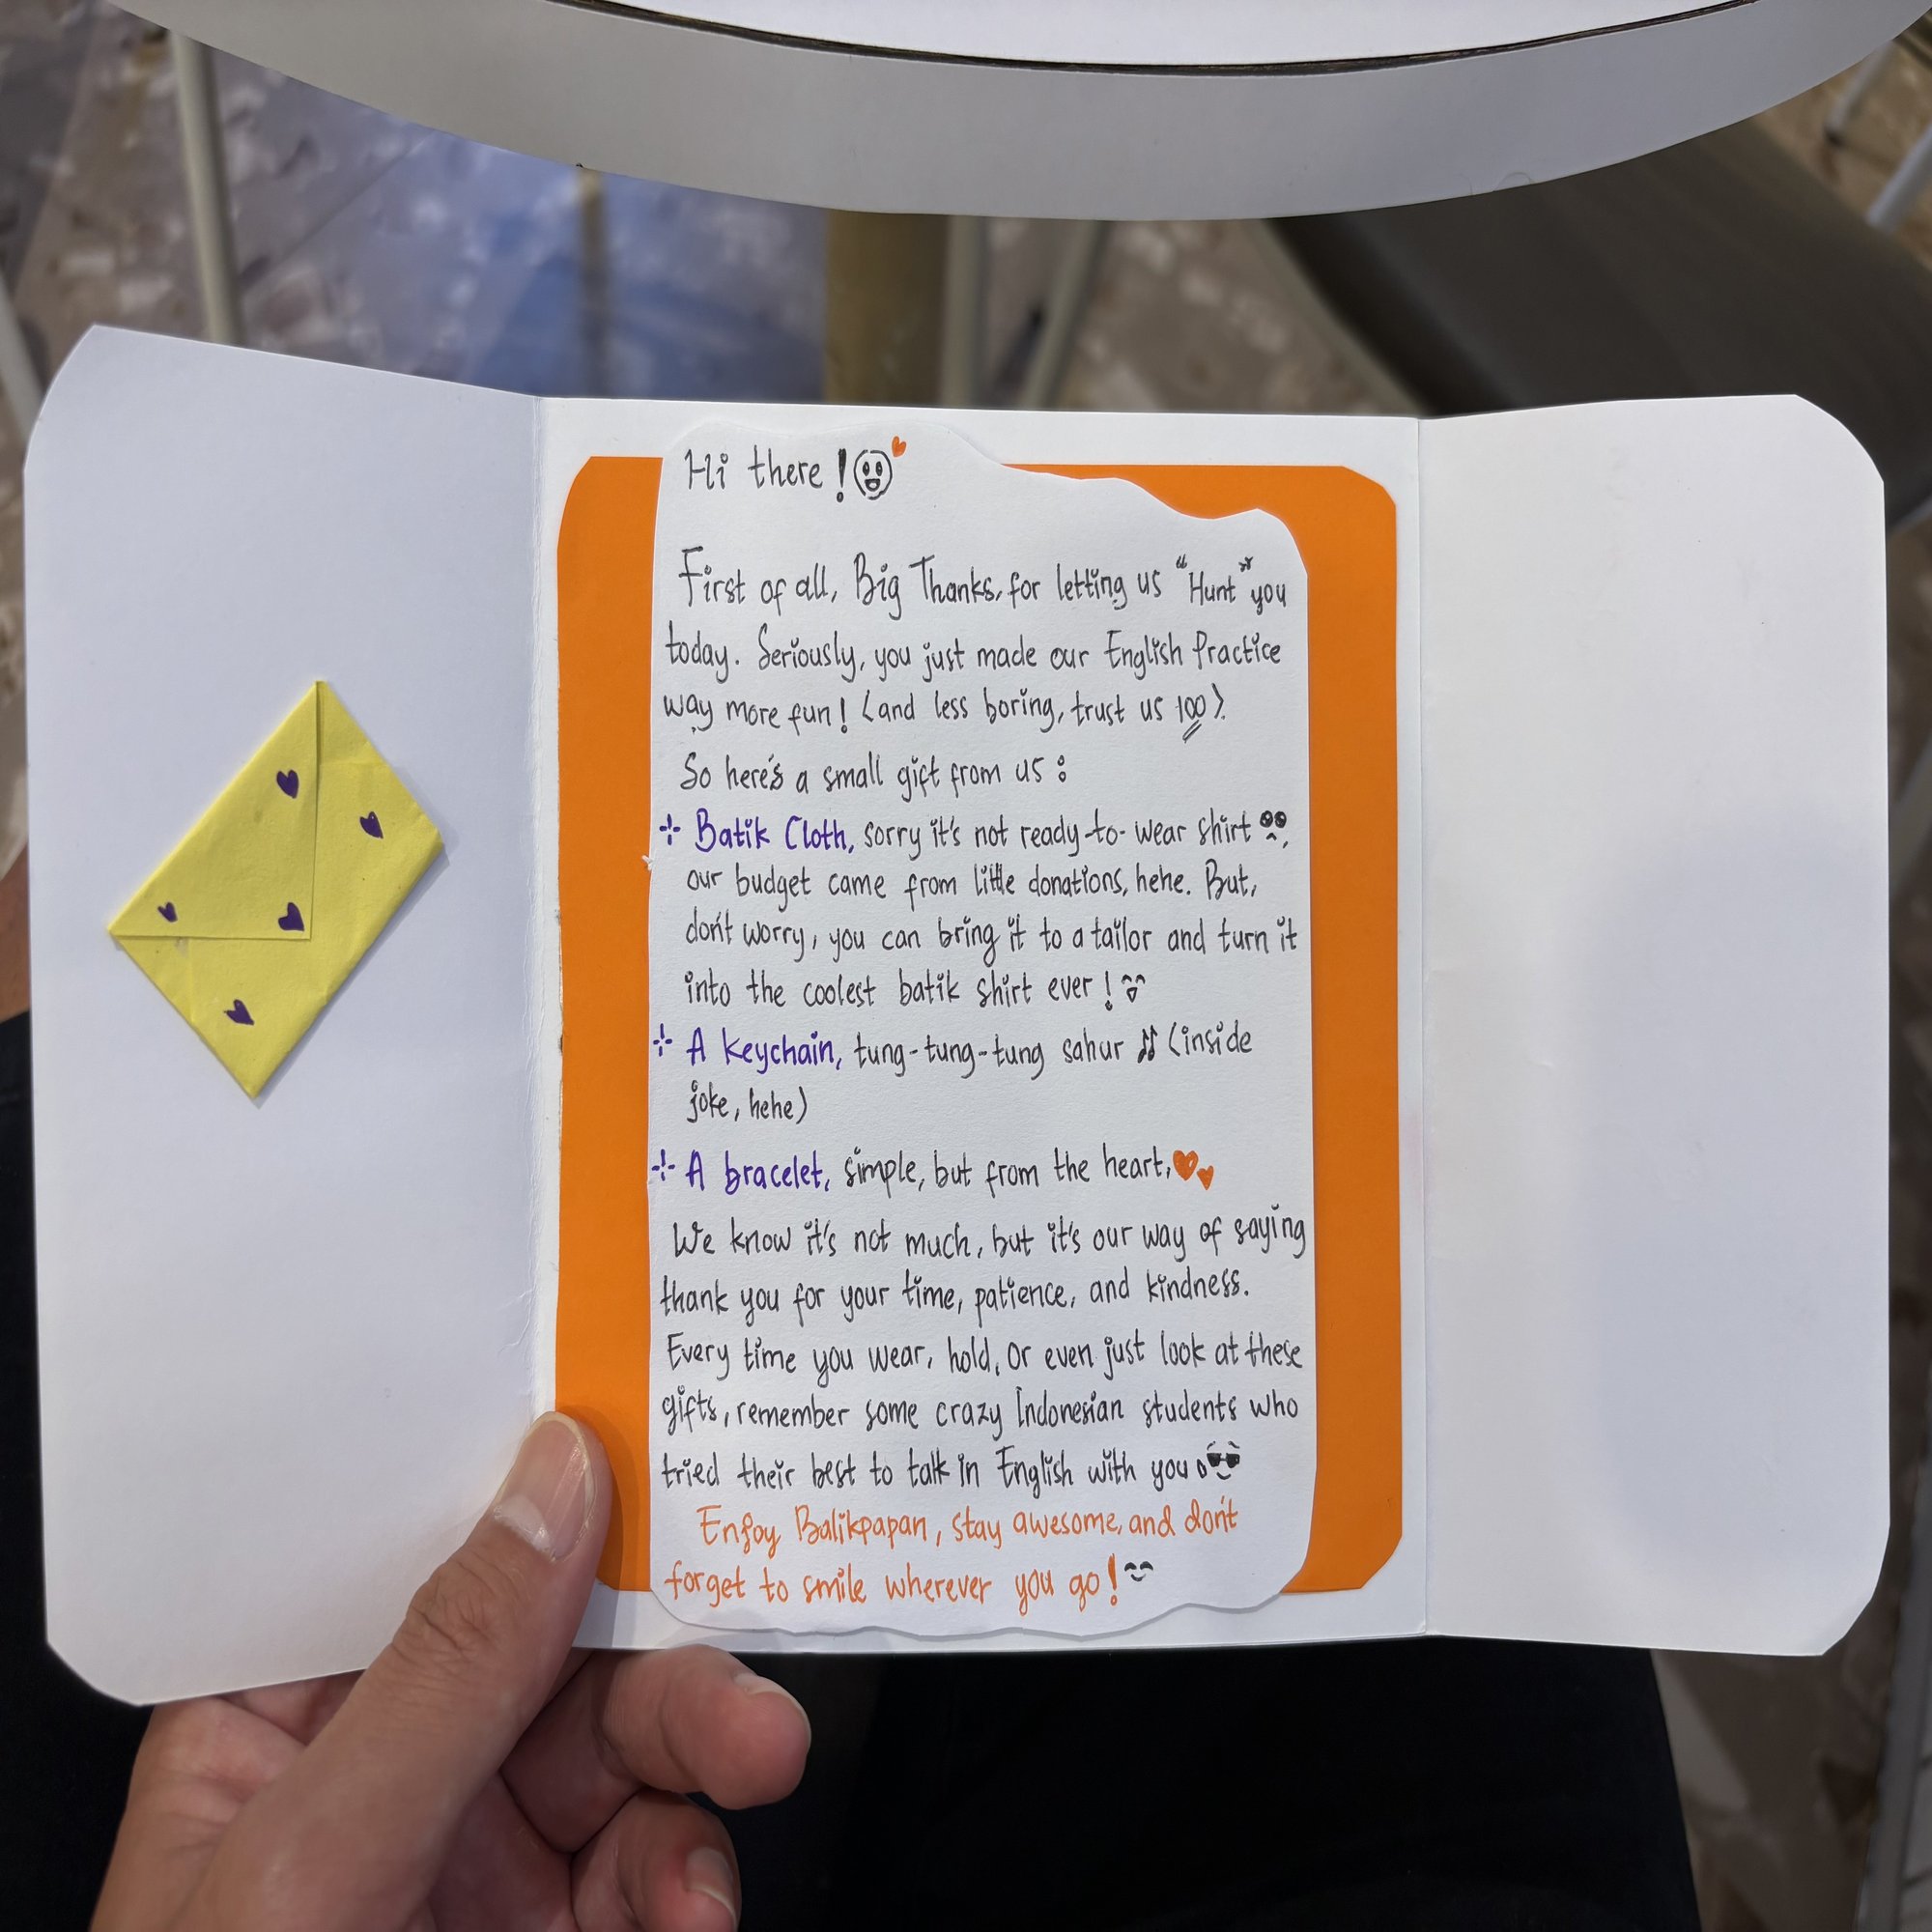 Hi there!
First of all, Big Thanks, for letting us "Hunt" you
today. Seriously, you just made our English Practice
way more fun! (and less boring, trust us 100).
So here's a small gift from us :
Batik Cloth, sorry it's not ready-to-wear shirt
our budget came from little donations, hehe. But,
don't worry, you can bring it to a tailor and turn it
into the coolest batik shirt ever!
A keychain, tung-tung-tung sahur ♫ (inside
joke, hehe)
A bracelet, simple, but from the heart.
We know it's not much, but it's our way of saying
thank you for your time, patience, and kindness.
Every time you wear, hold, or even just look at these
gifts, remember some crazy Indonesian students who
tried their best to talk in English with you
Enjoy Balikpapan, stay awesome, and don't
forget to smile wherever you go!